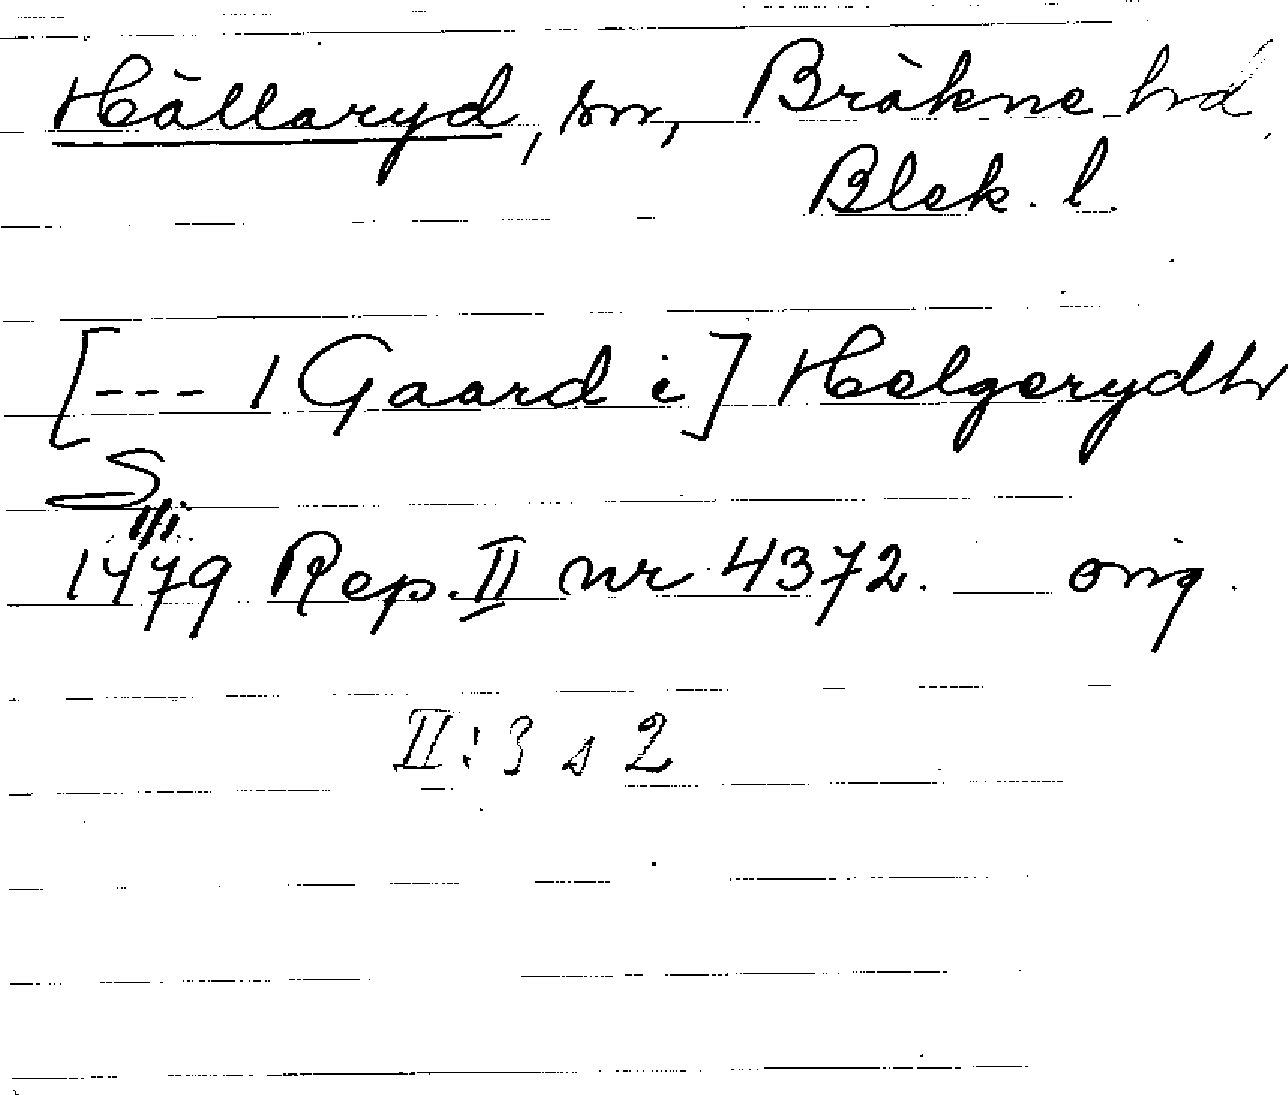 Hällaryd, sn, Bräkne hd,
Blek. l.
[--- 1 Gaard i] Helgerydh
S
1479 Rep. II nr 4372. orig.
II:3 s 2